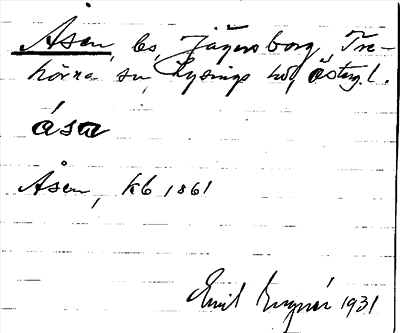 Åsen, ls, Jägersborg, Tre-
hörna sn, Lysings hd, Östergl.
åsa
Åsen, kb 1861
Emil 1931